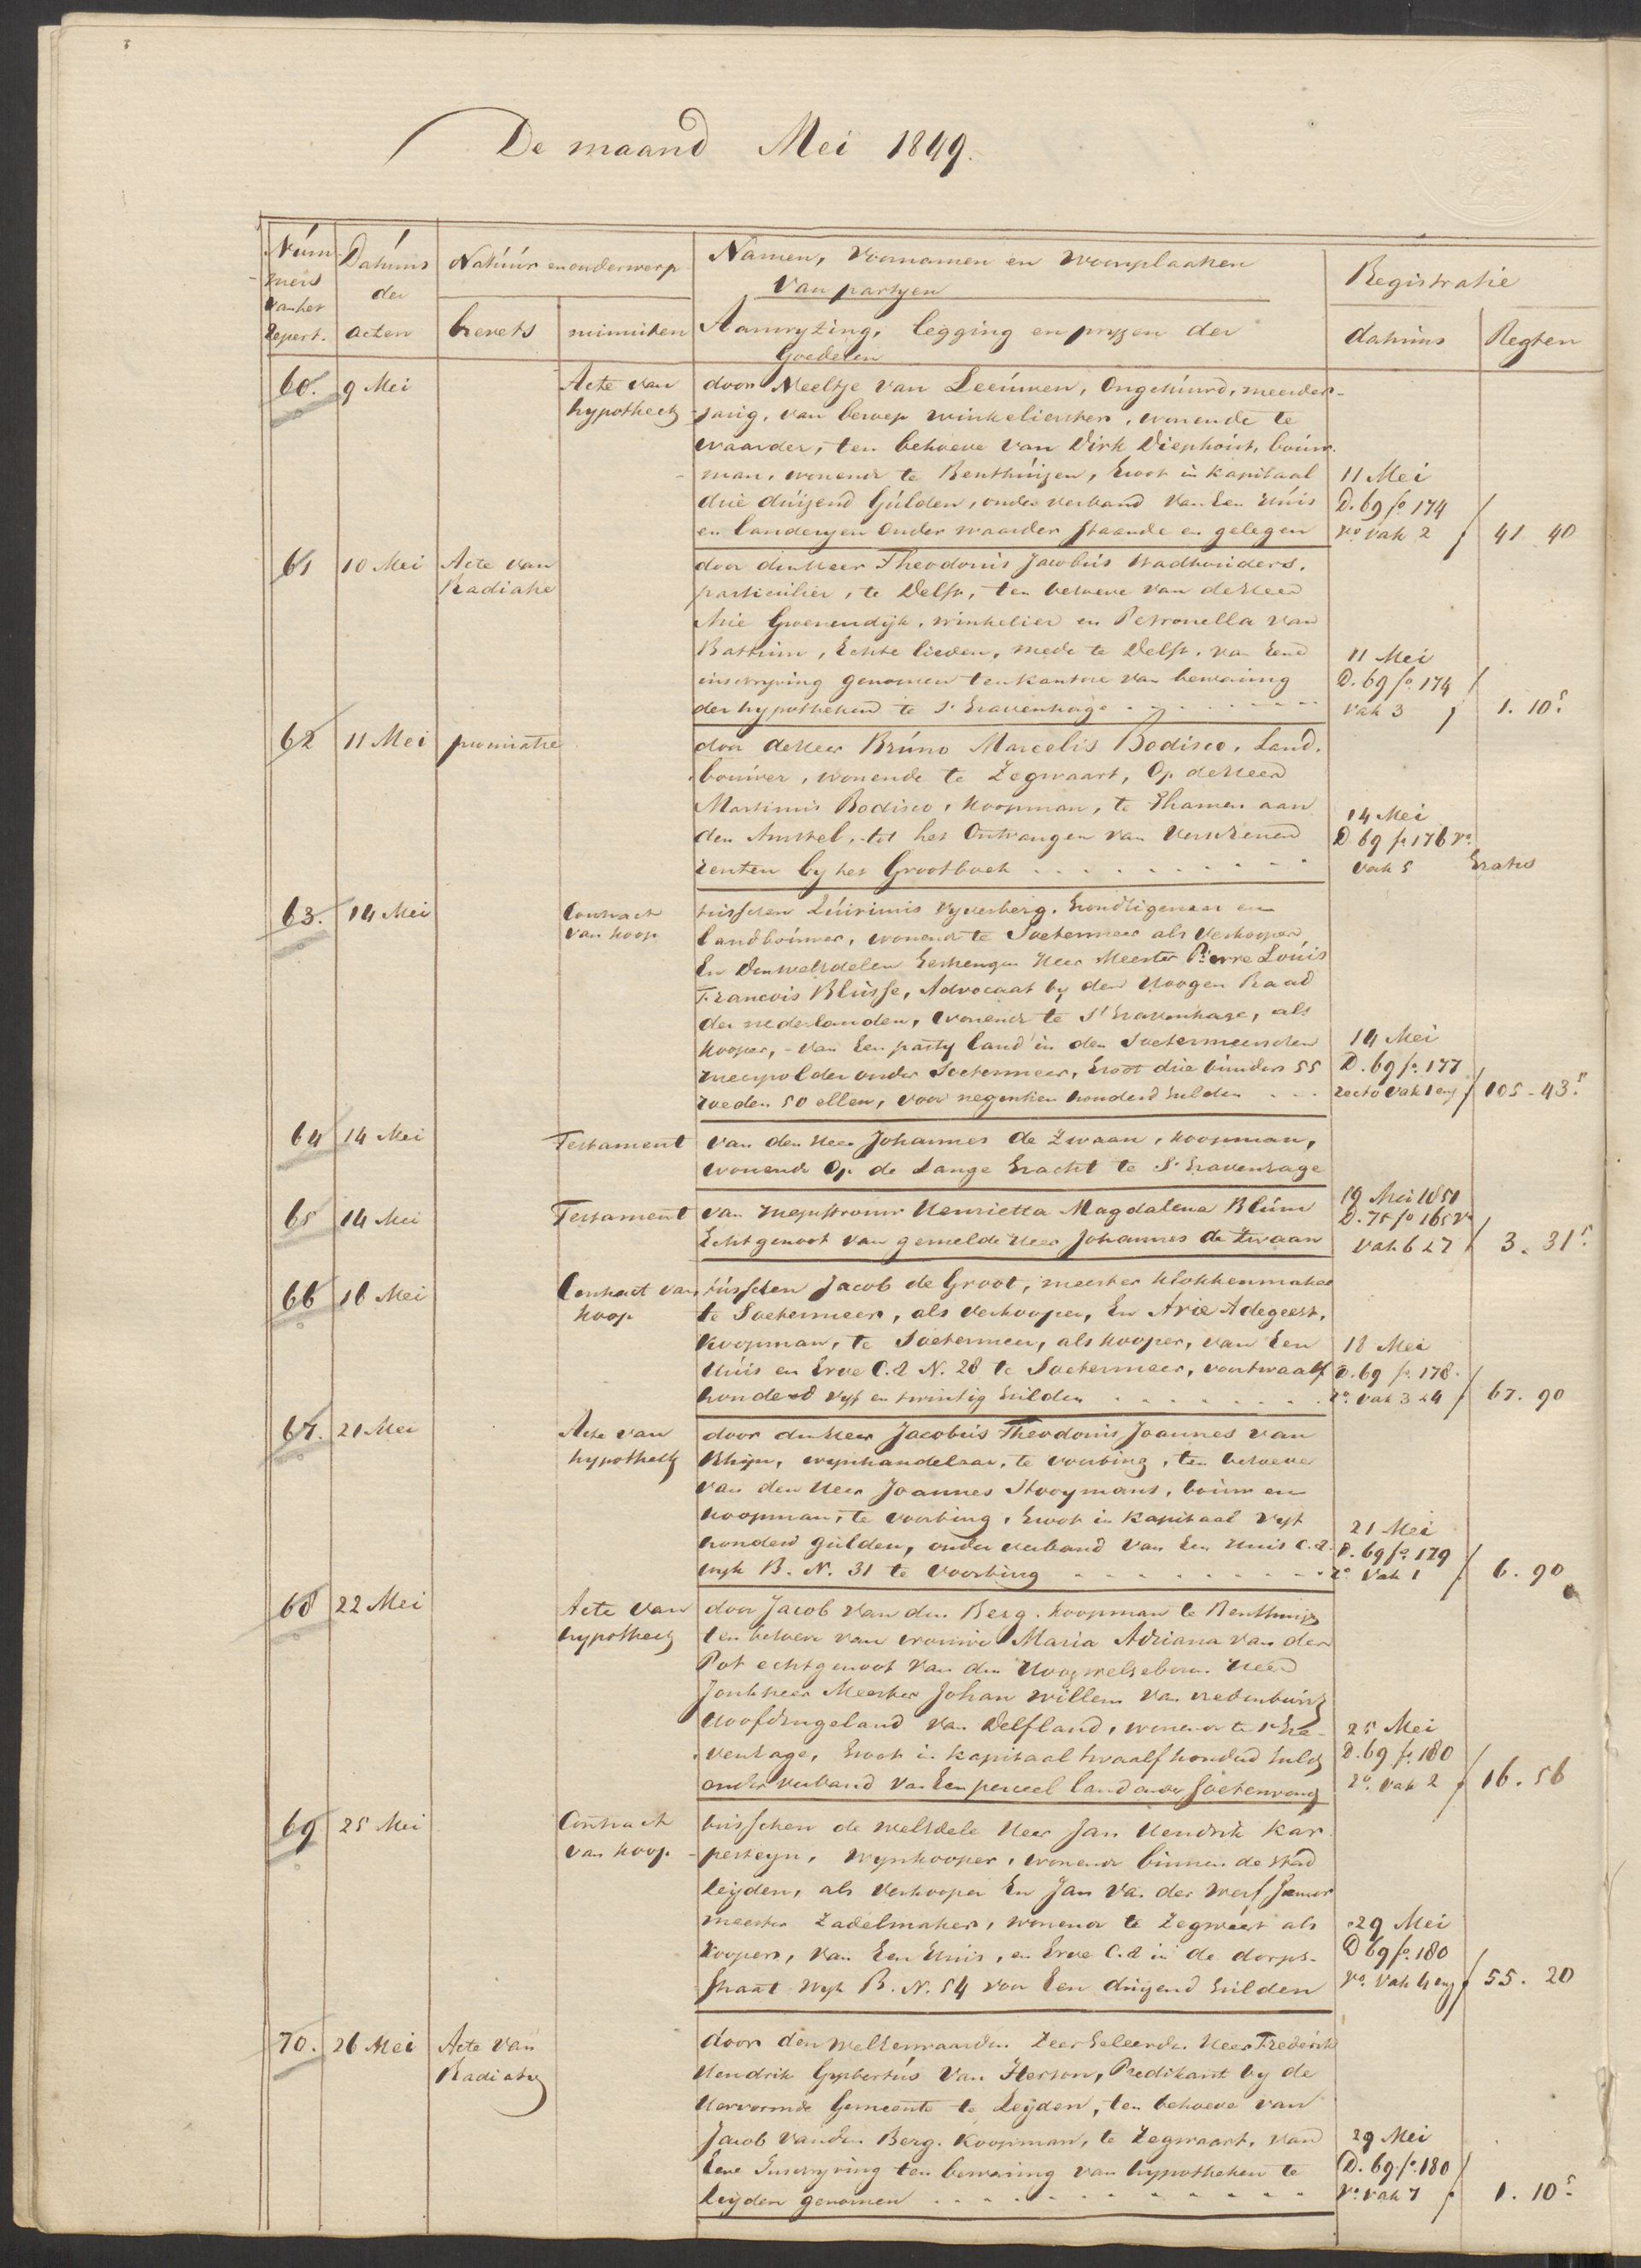 De maand Mei 1849.
Núm
mers
van het
repert.
Datúms
der
acten
Natúúr en onderwerp
brevets
minuiten
Namen, voornamen en woonplaatsen
van partyen
Aanwyzing, legging en pryzen der
Goederen
Registratie
datums
Regten
60. 9 Mei Acte van door Neeltje van Leeúwen, Ongehúúrd, meerder-
hypotheek jarig, van beroep winkelierster, wonende te
waarder, ten behoeve van Dirk Diephoút, boúw-
man, wonende te Benthúizen, Groot in kapitaal 11 Mei
drie dúizend Gúlden, onder verband van Een Húis D. 69 fo 174
en landeryen Onder waarder staande en gelegen vo vak 2 41 40
61 10 Mei Acte van door den Heer Theodorús Jacobús Stadhouders,
Radiatie particulier, te Delft, ten behoeve van de Heer
Arie Groenendijk, winkelier en Petronella van
Echte lieden, mede te Delft, van Eene 11 Mei
inschryving genomen ten kantore van bewaring D. 69 fo. 174
der hypotheken te s'Gravenhage vak 3 1. 10 5
62 11 Mei door de Heer Brúno Marcelis Bodisco, Land-
bouwer, wonende te Zegwaart, Op de Heer
Martinús Bodisco, Koopman, te Thamen aan 14 Mei
den Amstel, tot het Ontvangen van Verschenen D. 69 fo 176 vo
renten by het Grootboek vak 5 Gratis
63. 14 Mei Contract tusschen Qúirinús Vyverberg, Grondeigenaar en
van koop landboúwer, wonende te Soetermeer als Verkooper
En den weledelen Gestrengen Heer Meester Pierre Loúis
Francois Blússe, Advocaat by den Hoogen Raad
der nederlanden, wonende te S'Gravenhage, als
kooper, - van Een party land in den Soetermeersche 14 Mei
meerpolder onder Soetermeer, Groot drie búnders 55 D. 69 fo. 177
roeden 50 ellen, voor negentien honderd Gulden recto vak 1 en 105 - 43 5
64 14 Mei Testament van den Heer Johannes de Zwaan, koopman,
wonende Op de Lange Gracht te S'Gravenhage
65 14 Mei Testament van mejuffrouw Henrietta Magdalena Blúm 19 Mei 1851
Echtgenoot van gemelde Heer Johannes de Zwaan D. 75 fo 165 vo
vak 6 & 7 3. 31 5
66 16 Mei Contract van tússchen Jacob de Groot, meester klokkenmaker
koop te Soetermeer, als Verkooper, En Arie Adegeest,
koopman, te Soetermeer, als kooper, van Een 18 Mei
Húis en Erve C.A N. 28 te Soetermeer, voor twaalf D. 69 fo. 178
honderd vyf en twintig Gulden ro. vak 3 & 4 67. 90
67. 21 Mei Acte van door den Heer Jacobús Theodorús Joannes van
hypotheek Rhijn, wynhandelaar, te voorburg, ten behoeve
van den Heer Joannes Hooymans, boúw en
koopman, te voorburg, Groot in kapitaal vyf 21 Mei
honderd gúlden, onder verband van Een Huis C.A. D. 69 fo. 179
wyk B. N. 31 te voorburg ro vak 1 6. 90
68 22 Mei Acte van door Jacob van den Berg, koopman te Benthuiz
hypotheek ten behoeve van vrouwe Maria Adriana van der
Pot echtgenoot van den Hoogwelgeboren Heer
Jonkheer Meester Johan Willem van vredenburg
Hoofdingeland van Delfland, wonende te s'Gra- 25 Mei
venhage, Groot in kapitaal twaalf honderd Guld D. 69 fo. 180
onder verband van Een perceel land onder Soeterwoude ro. vak 2 16. 56
69 25 Mei Contract tusschen de WelEdele Heer Jan Hendrik Kar
van koop pesteyn, Wynkooper, wonende binnen de Stad
Leijden, als Verkooper En Jan van der Werf Junior
meester Zadelmaker, wonende te Zegwaart als 29 Mei
koopers, van Een Húis, en Erve C.A in de dorps- D 69 fo. 180
straat wyk B. N. 54 voor Een dúizend Gúlden vo. vak 4 en 55. 20
70. 26 Mei Acte van door den WelEerwaarden Zeer Geleerden Heer Frederik
Radiatie Hendrik Gysbertús van Iterson, Predikant by de
Hervormde Gemeente te Leijden, ten behoeve van
Jacob van den Berg, koopman, te Zegwaart, van 29 Mei
Eene Inschryving ten bewaring van hypotheken te D. 69 fo. 180
Leijden genomen vo. vak 7 1. 10 5